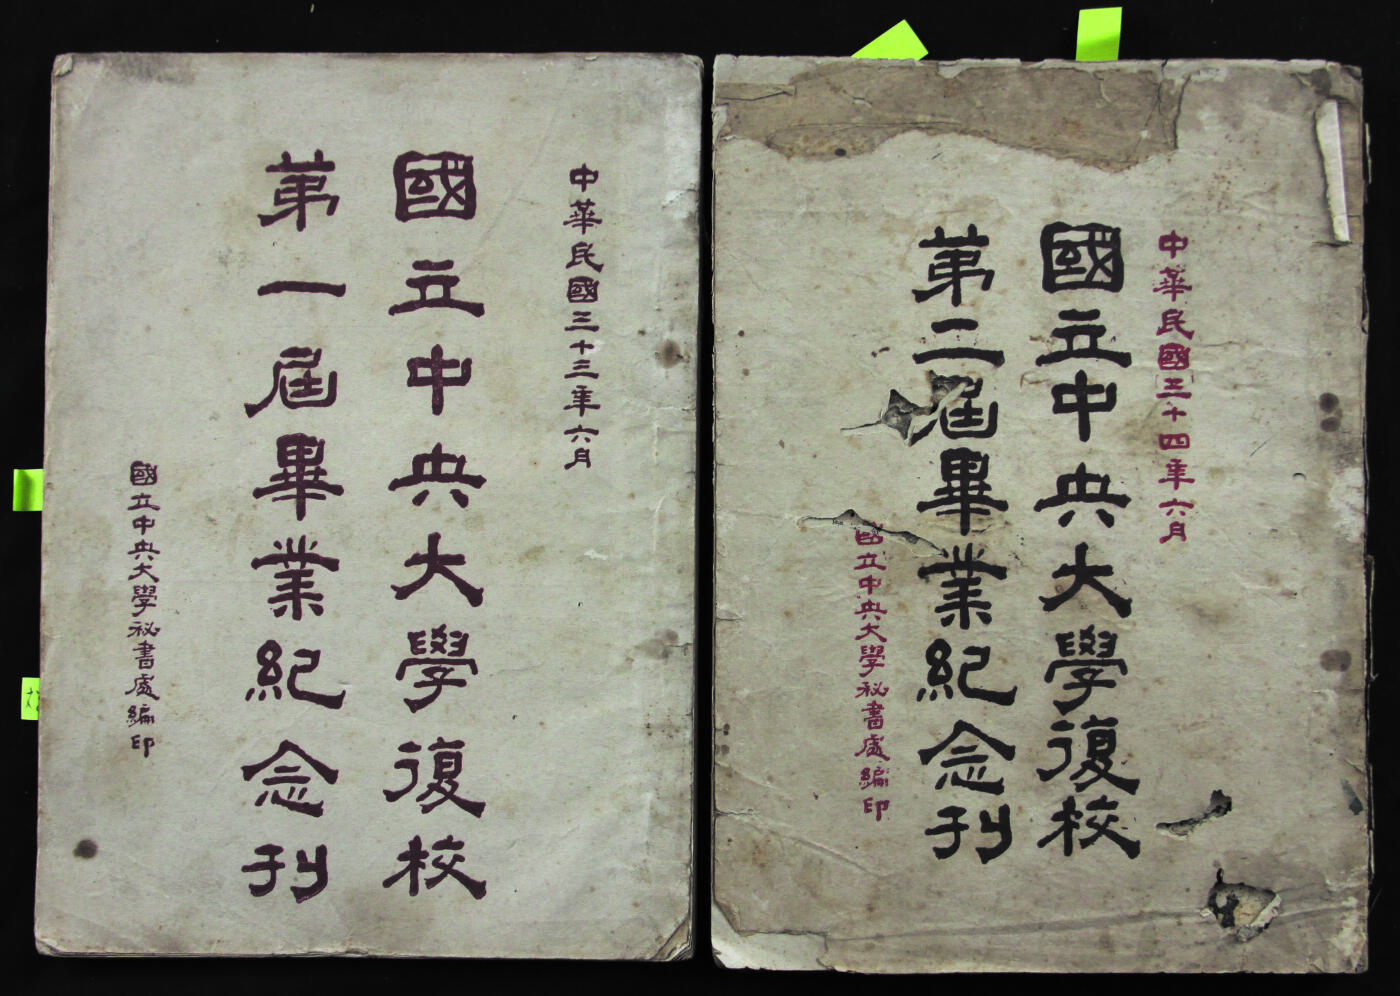 中華民國三十三年六月
國立中央大學復校
第一屆畢業紀念刊
國立中央大學秘書處編印
中華民國三十四年六月
國立中央大學復校
第二屆畢業紀念刊
國立中央大學秘書處編印